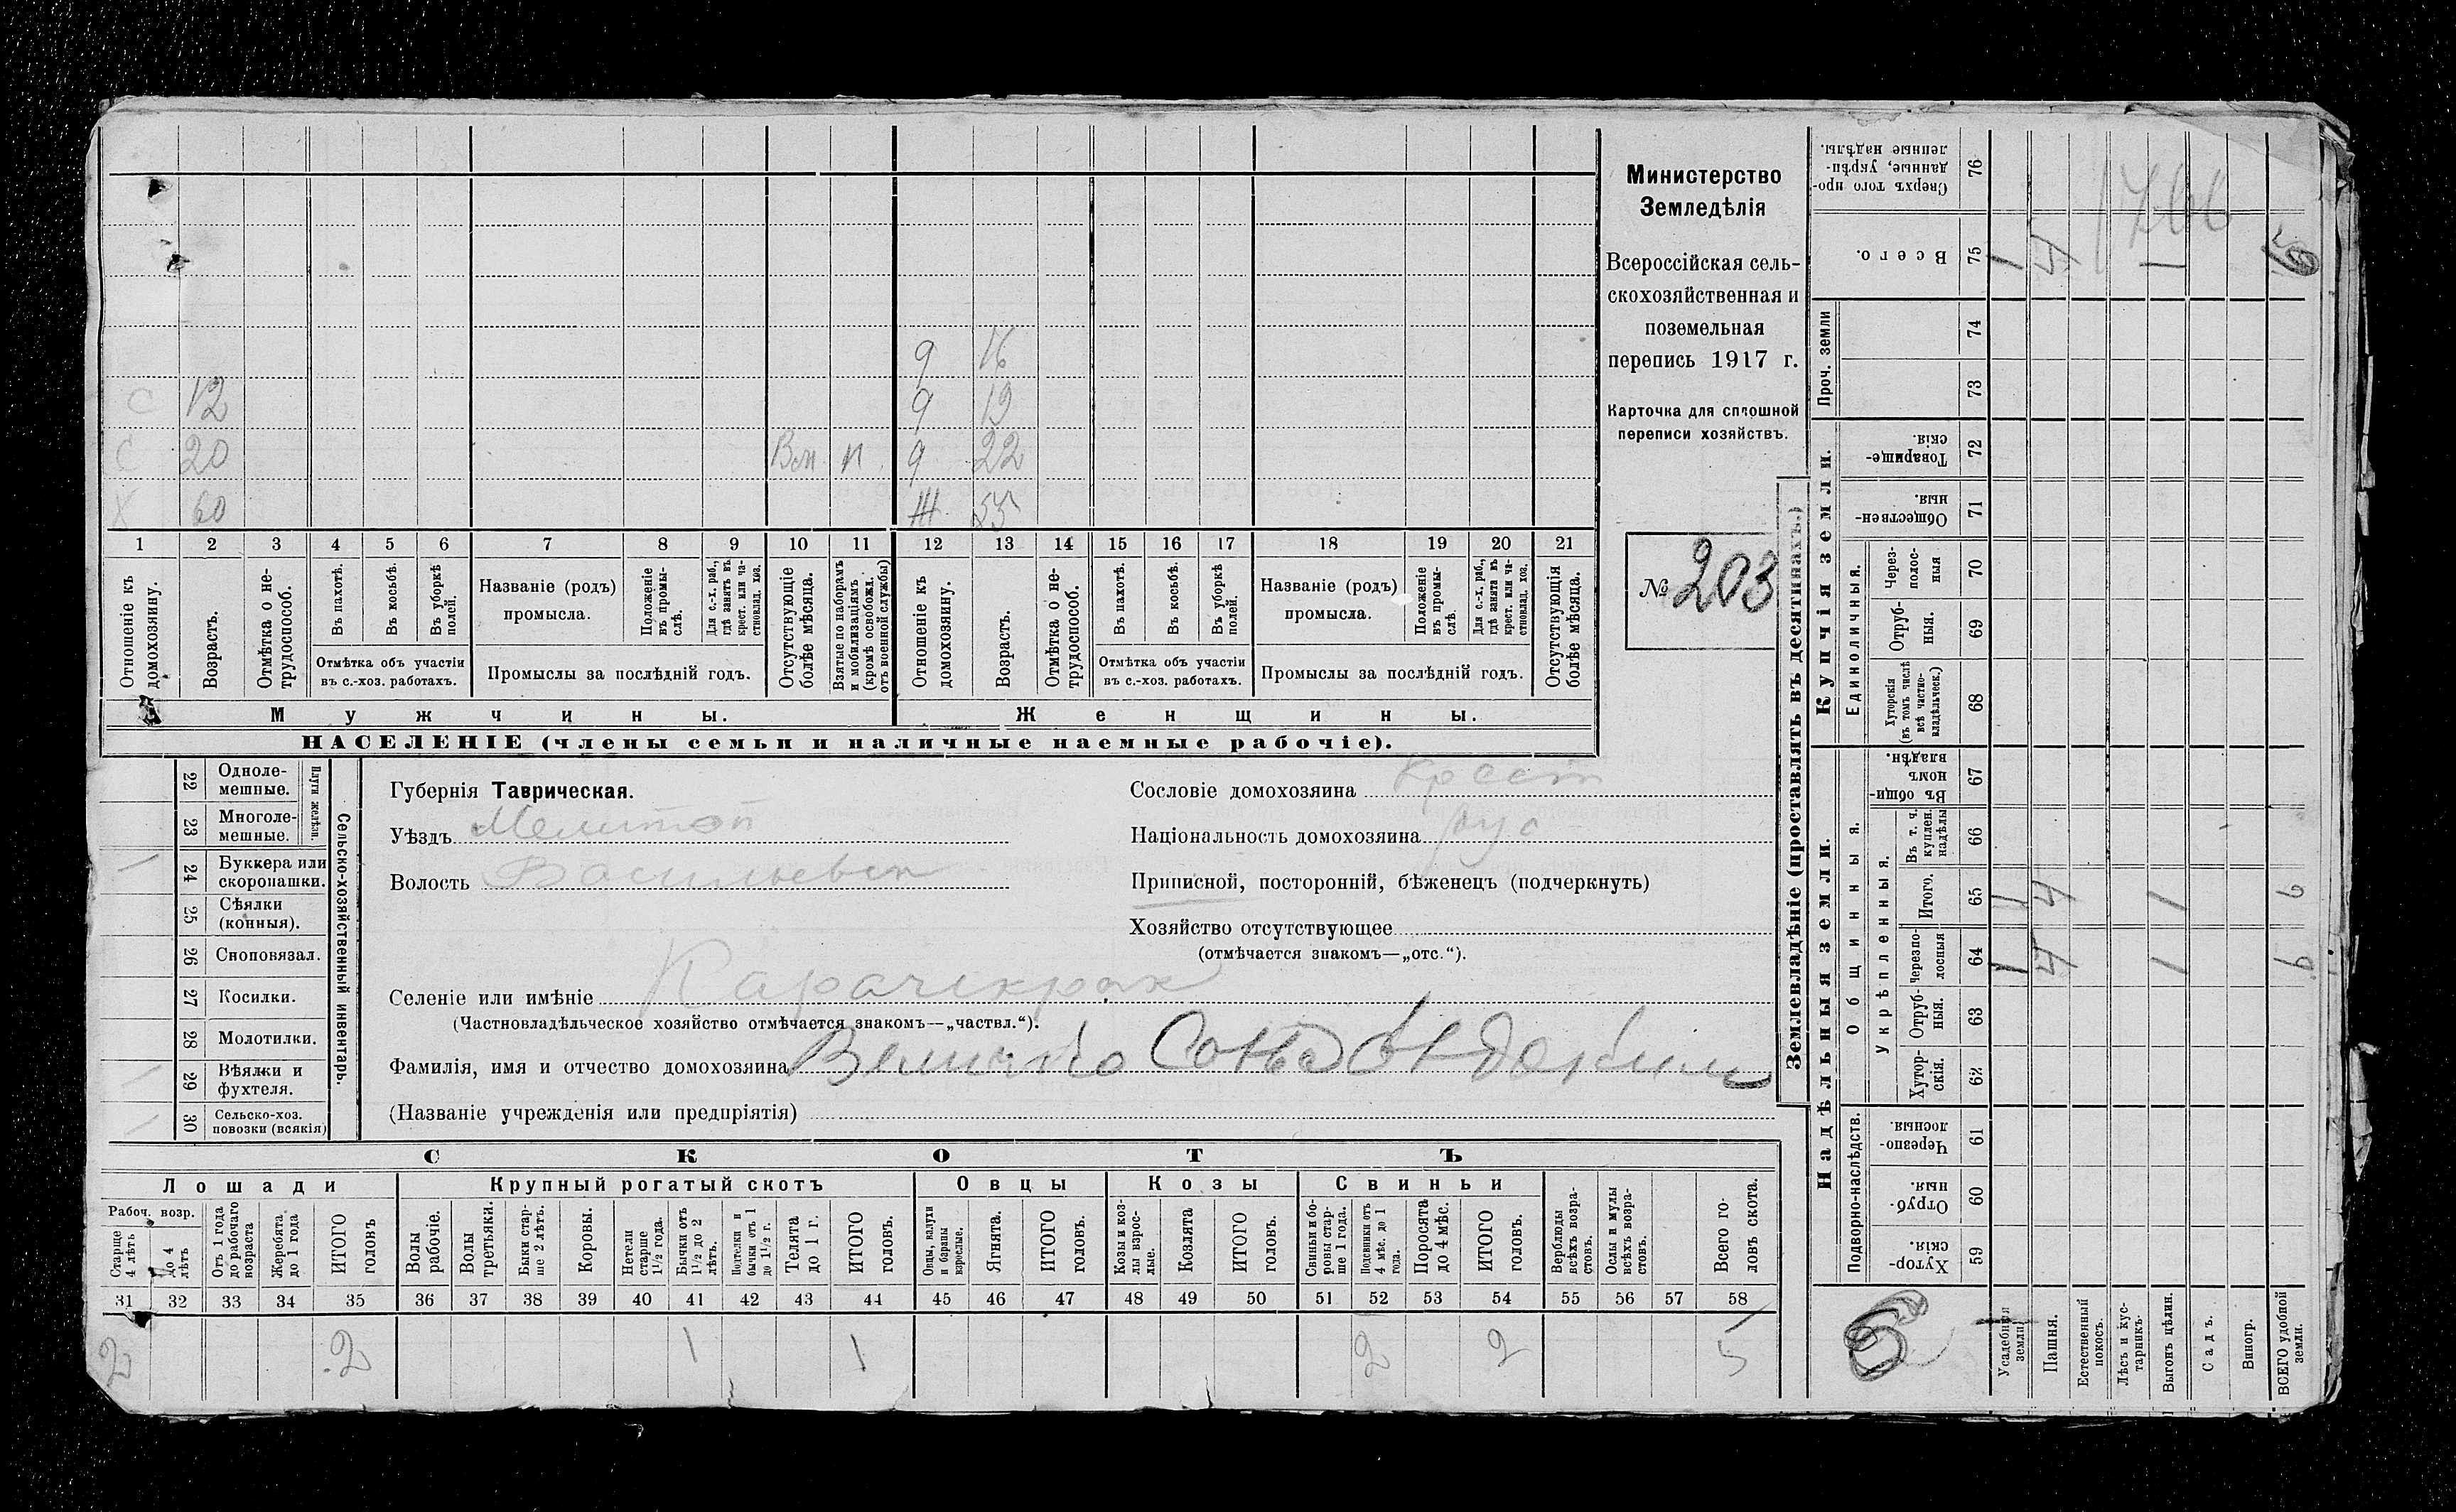 9 16
С 12 9 19
С 20 Вм. п. 9 22
Х 60 Ж. 55
1 2 3 4 5 6 7 8 9 10 11 12 13 14 15 16 17 18 19 20 21
Отношеніе къ домохозяину.
Возрастъ.
Отмѣтка о не-трудоспособ.
Въ пахотѣ.
Въ косьбѣ.
Въ уборкѣ полей.
Отмѣтка объ участіи
въ с.-хоз. работахъ.
Названіе (родъ)
промысла.
Положеніе въ промы-слѣ.
Для с.-х. раб., гдѣ занятъ въ крест. или ча-стновлад. хоз.
Промыслы за послѣдній годъ.
Отсутствующіе болѣе мѣсяца.
Взятые по наборамъ и мобилизаціямъ (кромѣ освобожд. отъ военной службы)
Отношеніе къ домохозяину.
Возрастъ.
Отмѣтка о не-трудоспособ.
Въ пахотѣ.
Въ косьбѣ.
Въ уборкѣ полей.
Отмѣтка объ участіи
въ с.-хоз. работахъ.
Названіе (родъ)
промысла.
Положеніе въ промы-слѣ.
Для с.-х. раб., гдѣ занята въ крест. или ча-стновлад. хоз.
Промыслы за послѣдній годъ.
Отсутствующія болѣе мѣсяца.
Мужчины.
Женщины.
НАСЕЛЕНІЕ (члены семьи и наличные наемные рабочіе).
Министерство
Земледѣлія
Всероссійская сель-
скохозяйственная и
поземельная
перепись 1917 г.
Карточка для сплошной
переписи хозяйствъ.
№ 203
22 Одноле-мешные.
23 Многоле-мешные.
Плуги желѣзн.
24 Буккера или скоропашки.
25 Сѣялки (конныя).
26 Сноповязал.
27 Косилки.
28 Молотилки.
29 Вѣялки и фухтеля.
30 Сельско-хоз. повозки (всякія)
Сельско-хозяйственный инвентарь.
Губернія Таврическая.
Уѣздъ Мелитоп
Волость Васильевск
Сословіе домохозяина крест
Національность домохозяина рус
Приписной, посторонній, бѣженецъ (подчеркнуть)
Хозяйство отсутствующее
(отмѣчается знакомъ—„отс.“).
Селеніе или имѣніе Карачекрак
(Частновладѣльческое хозяйство отмѣчается знакомъ—„частвл.“).
Фамилія, имя и отчество домохозяина Величко
(Названіе учрежденія или предпріятія)
СКОТЪ
Лошади
Крупный рогатый скотъ
Овцы
Козы
Свиньи
Рабоч. возр.
Старше 4 лѣтъ
до 4 лѣтъ
Отъ 1 года до рабочаго возраста
Жеребята до 1 года
ИТОГО головъ
Волы рабочіе.
Волы третьяки.
Быки стар-ше 2 лѣтъ.
Коровы.
Нетели старше 1½ года.
Бычки отъ 1½ до 2 лѣтъ.
Подтелки и бычки отъ 1 до 1½ г.
Телята до 1 г.
ИТОГО головъ.
Овцы, валухи и бараны взрослые.
Ягнята.
ИТОГО головъ.
Козы и коз-лы взрос-лые.
Козлята
ИТОГО головъ.
Свиньи и бо-ровы стар-ше 1 года.
Подсвинки отъ 4 мѣс. до 1 года.
Поросята до 4 мѣс.
ИТОГО головъ.
Верблюды всѣхъ возра-стовъ.
Ослы и мулы всѣхъ возра-стовъ.
Всего го-ловъ скота.
31 32 33 34 35 36 37 38 39 40 41 42 43 44 45 46 47 48 49 50 51 52 53 54 55 56 57 58
2 2 1 1 2 2 5
Землевладѣніе (проставлять въ десятинахъ.)
Купчія земли.
Надѣльныя земли.
Сверхъ того про-данные, укрѣп-ленные надѣлы. 76
Всего. 75
Проч. земли
74
73
Товарище-скія. 72
Обществен-ныя. 71
Единоличныя.
Через-полос-ныя 70
Отруб-ныя. 69
Хуторскія (въ томъ числѣ всѣ частно-владѣльческ.) 68
Общинныя.
Въ общи-номъ владѣн. 67
Укрѣпленныя.
Въ т. ч. куплен. надѣлы 66
Итого. 65
Черезпо-лосныя 64
Отруб-ныя. 63
Хутор-скія. 62
Подворно-наслѣдств.
Черезпо-лосныя. 61
Отруб-ныя. 60
Хутор-скія. 59
Усадебная земля.
Пашня.
Естественный покосъ.
Лѣсъ и кус-тарникъ.
Выгонъ цѣлин.
Садъ.
Виногр.
ВСЕГО удобной земли.
1 4 1
1 4 1
1 4 1